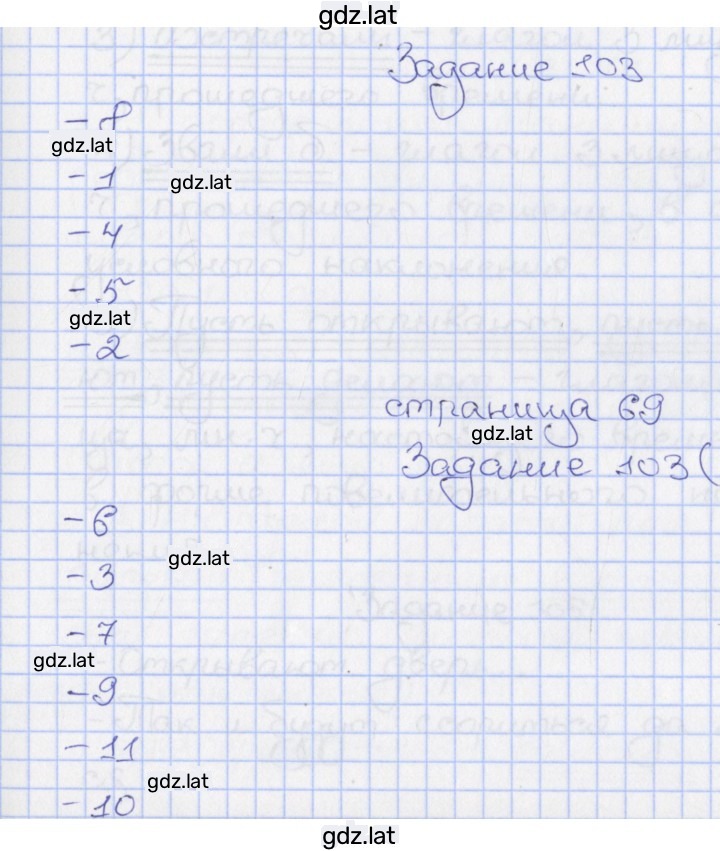 gdz.lat
Задание 103
- 8
gdz.lat
- 1
gdz.lat
- 4
- 5
gdz.lat
- 2
страница 69
gdz.lat
Задание 103 (
- 6
gdz.lat
- 3
- 7
gdz.lat
- 9
- 11
gdz.lat
- 10
gdz.lat